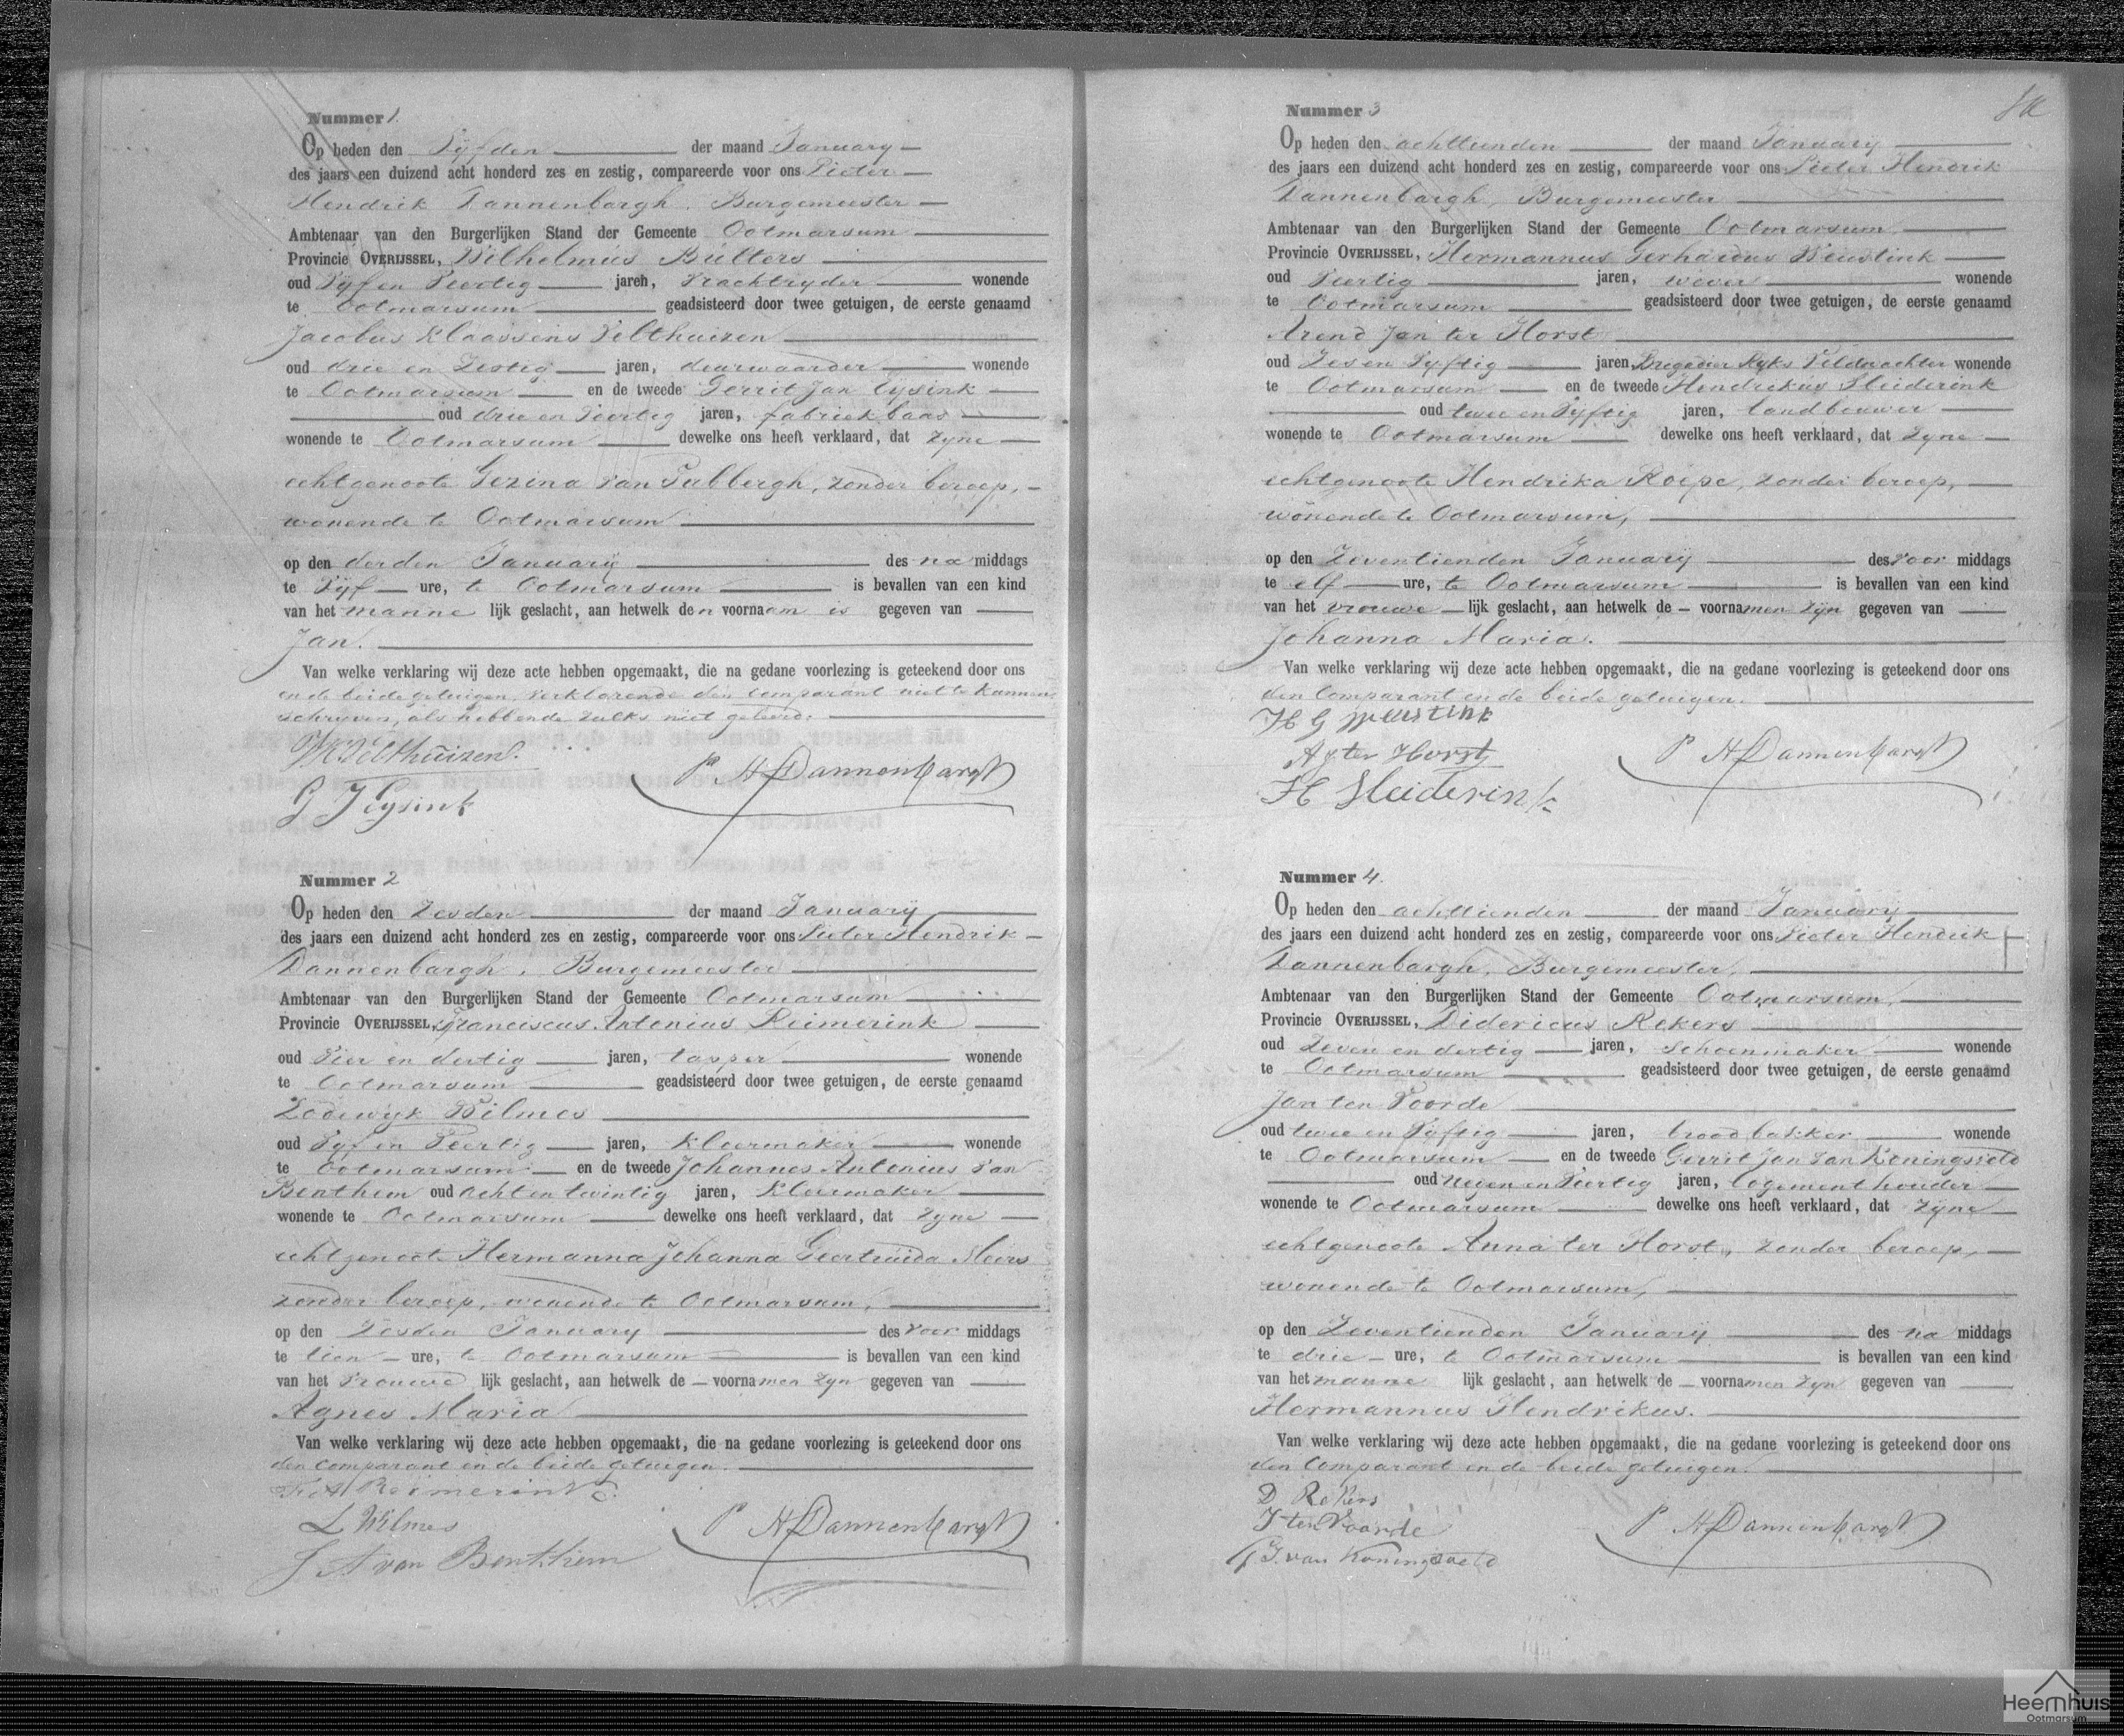 Nummer 1.
Op heden den Vijfden der maand January
des jaars een duizend acht honderd zes en zestig, compareerde voor ons Pieter
Hendrik Dannenbargh, Burgemeester
Ambtenaar van den Burgerlijken Stand der Gemeente Ootmarsum
Provincie OVERIJSSEL, Wilhelmus Bulters
oud Vijf en Veertig jaren, Vrachtryder wonende
te Ootmarsum geadsisteerd door twee getuigen, de eerste genaamd
Jacobus Klaassens Velthuizen
oud drie en Zestig jaren, deurwaarder wonende
te Ootmarsum en de tweede Gerrit Jan Eysink
oud drie en Veertig jaren, fabriekbaas
wonende te Ootmarsum dewelke ons heeft verklaard, dat zyne
echtgenoote Gezina van Tubbergh, zonder beroep,
wonende te Ootmarsum
op den derden January des na middags
te Vyf ure, te Ootmarsum is bevallen van een kind
van het manne lijk geslacht, aan hetwelk den voornaam is gegeven van
Jan.
Van welke verklaring wij deze acte hebben opgemaakt, die na gedane voorlezing is geteekend door ons
en de beide getuigen, verklarende den comparant niet te kunnen
schrijven, als hebbende zulks niet geleerd.
Velthuizen.
P H Dannenbargh
G J Eysink
Nummer 2
Op heden den Zesden der maand January
des jaars een duizend acht honderd zes en zestig, compareerde voor ons Pieter Hendrik
Dannenbargh, Burgemeester
Ambtenaar van den Burgerlijken Stand der Gemeente Ootmarsum
Provincie OVERIJSSEL, Franciscus Antonius Reimerink
oud Vier en dertig jaren, tapper wonende
te Ootmarsum geadsisteerd door twee getuigen, de eerste genaamd
Lodewyk Wilmes
oud Vyf en Veertig jaren, kleermaker wonende
te Ootmarsum en de tweede Johannes Antonius van
Benthem oud acht en twintig jaren, kleermaker
wonende te Ootmarsum dewelke ons heeft verklaard, dat zyne
echtgenoote Hermanna Johanna Geertruida Meers
zonder beroep, wonende te Ootmarsum,
op den Zesden January des voor middags
te tien ure, te Ootmarsum is bevallen van een kind
van het Vrouwe lijk geslacht, aan hetwelk de voornamen zyn gegeven van
Agnes Maria
Van welke verklaring wij deze acte hebben opgemaakt, die na gedane voorlezing is geteekend door ons
den comparant en de beide getuigen.
F A Reimerink
L Wilmes
P H Dannenbargh
J A van Benthem
Nummer 3
Op heden den achttienden der maand January
des jaars een duizend acht honderd zes en zestig, compareerde voor ons Pieter Hendrik
Dannenbargh, Burgemeester
Ambtenaar van den Burgerlijken Stand der Gemeente Ootmarsum
Provincie OVERIJSSEL, Hermannus Gerhardus Weustink
oud Veertig jaren, wever wonende
te Ootmarsum geadsisteerd door twee getuigen, de eerste genaamd
Arend Jan ter Horst
oud Zes en Vyftig jaren Bregadier Ryks Veldwachter wonende
te Ootmarsum en de tweede Hendrikus Sleiderink
oud twee en Vyftig jaren, landbouwer
wonende te Ootmarsum dewelke ons heeft verklaard, dat zyne
echtgenoote Hendrika Roepe, zonder beroep,
wonende te Ootmarsum,
op den Zeventienden January des voor middags
te elf ure, te Ootmarsum is bevallen van een kind
van het vrouwe lijk geslacht, aan hetwelk de voornamen zyn gegeven van
Johanna Maria.
Van welke verklaring wij deze acte hebben opgemaakt, die na gedane voorlezing is geteekend door ons
den Comparant en de beide getuigen.
H G Weustink
A J ter Horst
P H Dannenbargh
H Sleiderink
Nummer 4.
Op heden den achttienden der maand January
des jaars een duizend acht honderd zes en zestig, compareerde voor ons Pieter Hendrik
Dannenbargh, Burgemeester,
Ambtenaar van den Burgerlijken Stand der Gemeente Ootmarsum,
Provincie OVERIJSSEL, Didericus Rekers
oud Zeven en dertig jaren, schoenmaker wonende
te Ootmarsum geadsisteerd door twee getuigen, de eerste genaamd
Jan ten Voorde
oud twee en Vyftig jaren, broodbakker wonende
te Ootmarsum en de tweede Gerrit Jan van Koningsveld
oud negen en Veertig jaren, logementhouder
wonende te Ootmarsum dewelke ons heeft verklaard, dat zyne
echtgenoote Anna ter Horst, zonder beroep,
wonende te Ootmarsum,
op den Zeventienden January des na middags
te drie ure, te Ootmarsum is bevallen van een kind
van het manne lijk geslacht, aan hetwelk de voornamen zyn gegeven van
Hermannus Hendrikus.
Van welke verklaring wij deze acte hebben opgemaakt, die na gedane voorlezing is geteekend door ons
den Comparant en de beide getuigen.
D Rekers
J ten Voorde
P H Dannenbargh
G J. van Koningsveld
Heemhuis
Ootmarsum